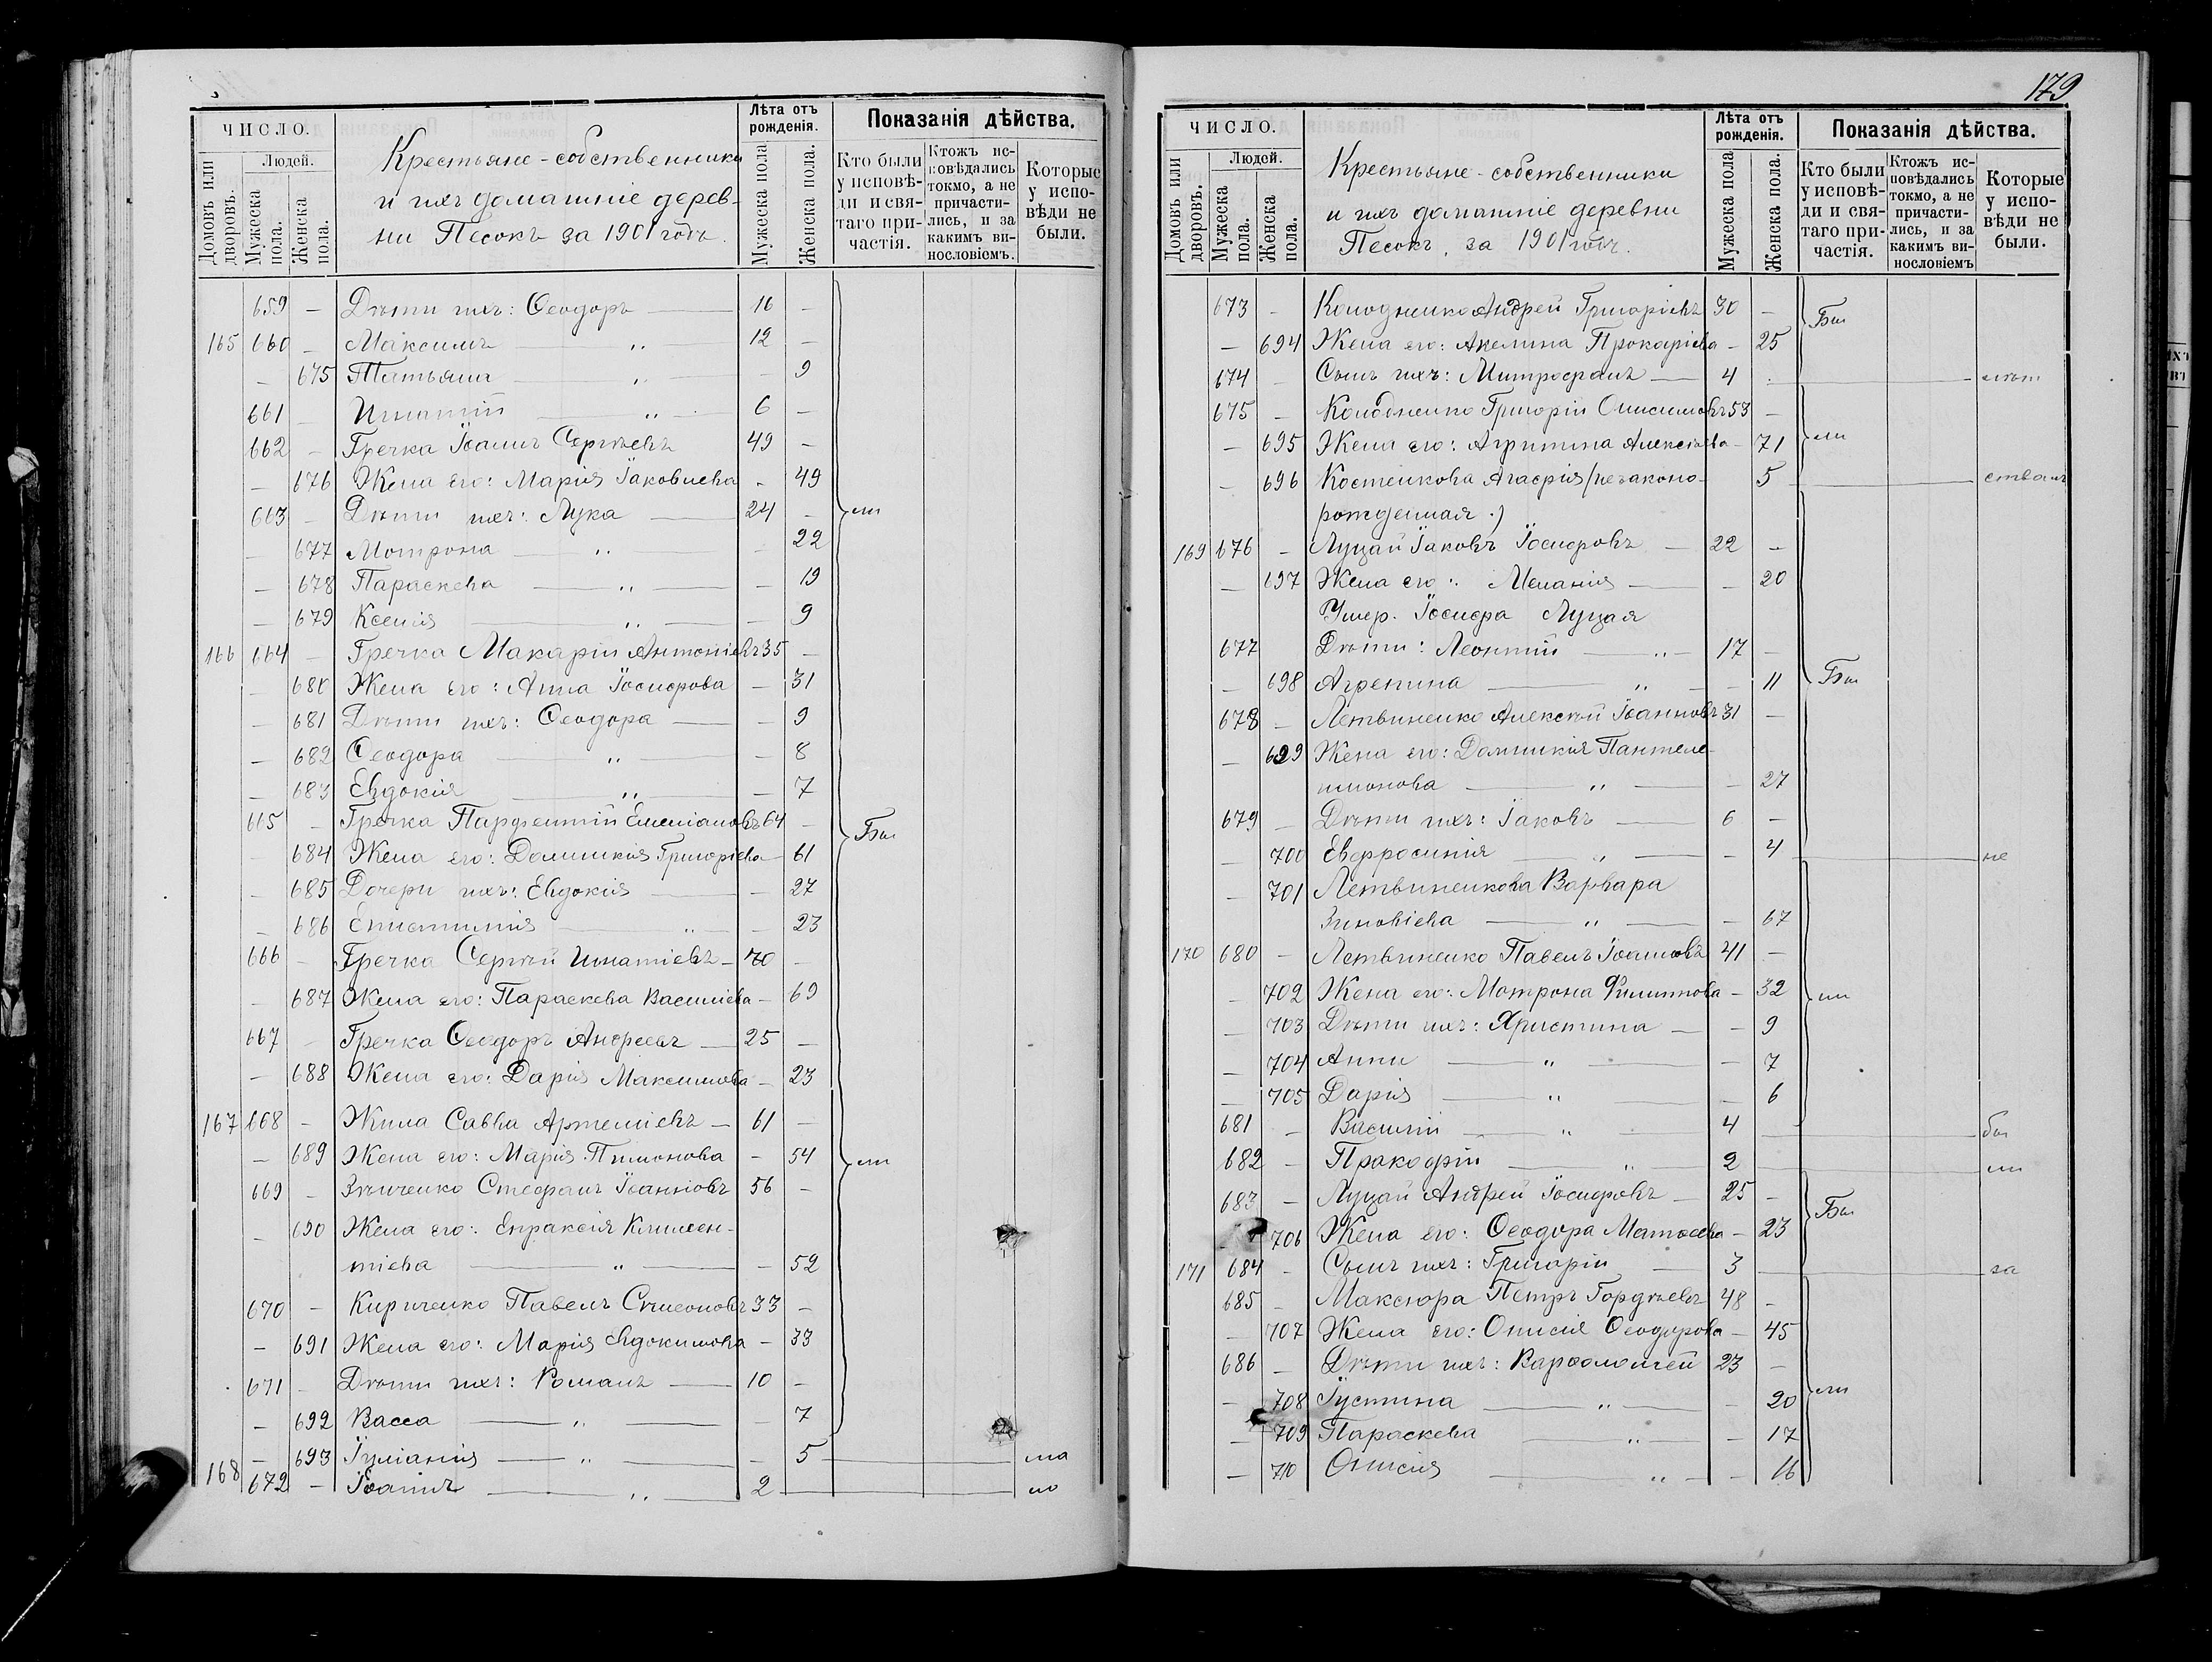 ЧИСЛО.
Домовъ или дворовъ.
Людей.
Мужеска пола.
Женска пола.
Крестьяне-собственники
и ихъ домашніе дерев-
ни Песокъ за 1901 годъ.
Лѣта отъ рожденія.
Мужеска пола
Женска пола.
Показанія дѣйства.
Кто были у исповѣди и святаго причастія.
Ктожъ исповѣдались токмо, а не причастились, и за какимъ винословіемъ.
Которые у исповѣди не были.
659 – Дѣти ихъ: Ѳеодоръ 16 –
165 660 – Максимъ „ 12 –
– 675 Татьяна „ – 9
661 – Игнатій „ 6 –
662 – Гречка Іоаннъ Сергѣевъ 49 –
– 676 Жена его: Марія Іаковлева – 49
663 – Дѣти ихъ: Лука 24 – ли
– 677 Мотрона „ – 22
– 678 Параскева „ – 19
– 679 Ксенія „ – 9
166 664 – Гречка Макарій Антоніевъ 35 –
– 680 Жена его: Анна Іосифова – 31
– 681 Дѣти ихъ: Ѳеодора – 9
– 682 Ѳеодора „ – 8
– 683 Евдокія „ – 7
665 – Гречка Парфентій Емеліановъ 64 – Бы
– 684 Жена его: Домникія Григоріева – 61
– 685 Дочери ихъ: Евдокія – 27
– 686 Епистимія „ – 23
666 – Гречка Сергѣй Игнатіевъ 70 –
– 687 Жена его: Параскева Василіева – 69
667 – Гречка Ѳеодоръ Андреевъ 25 –
– 688 Жена его: Дарія Максимова – 23
167 668 – Жила Савва Артеміевъ 61 –
– 689 Жена его: Марія Пимонова – 54 ли
669 – Зѣнченко Стефанъ Іоанновъ 56 –
– 690 Жена его: Евпраксія Климен-
тіева „ – 52
670 – Кириченко Павелъ Сѵмеоновъ 33 –
– 691 Жена его: Марія Евдокимова – 33
671 – Дѣти ихъ: Романъ 10 –
– 692 Васса „ – 7
– 693 Іуліанія „ – 5 ма
168 672 – Іоаннъ „ 2 ло
179
ЧИСЛО.
Домовъ или дворовъ.
Людей.
Мужеска пола.
Женска пола.
Крестьяне-собственники
и ихъ домашніе деревни
Песокъ, за 1901 годъ.
Лѣта отъ рожденія.
Мужеска пола
Женска пола.
Показанія дѣйства.
Кто были у исповѣди и святаго причастія.
Ктожъ исповѣдались токмо, а не причастились, и за какимъ винословіемъ
Которые у исповѣди не были.
673 – Колодненко Андрей Григоріевъ 30 – Бы
– 694 Жена его: Акелина Прокофіева – 25
674 – Сынъ ихъ: Митрофанъ 4 лѣт
675 – Колодненко Григорій Онисимовъ 53 –
– 695 Жена его: Агрипина Алексіева – 71 ли
– 696 Костенкова Агафія (незаконо- 5 ствомъ
рожденная.)
169 676 – Луцай Іаковъ Іосифовъ – 22 –
– 697 Жена его: Меланія – 20
Умер. Іосифа Луцая
677 Дѣти: Леонтій „ 17 –
– 698 Агрепина „ – 11 Бы
678 – Летвиненко Алексѣй Іоанновъ 31 –
– 699 Жена его: Домникія Пантеле-
имонова „ – 27
679 – Дѣти ихъ: Іаковъ 6 –
– 700 Евфросинія „ – 4 не
– 701 Летвиненкова Варвара
Зиновіева „ – 67
170 680 – Летвиненко Павелъ Іоанновъ 41 –
– 702 Жена его: Мотрона Филиппова – 32 ли
– 703 Дѣти ихъ: Христина – 9
– 704 Анна „ – 7
– 705 Дарія „ – 6
681 – Василій „ 4 бы
682 – Пракофій „ 2 ли
683 – Луцай Андрей Іосифовъ – 25 – Бы
– 706 Жена его: Ѳеодора Матѳеева – 23
171 684 – Сынъ ихъ: Григорій 3 за
685 – Максюра Петръ Гордѣевъ 48 –
– 707 Жена его: Онисія Ѳеодорова – 45
686 – Дѣти ихъ: Варѳоломей 23 –
– 708 Іустина „ – 20 ли
– 709 Параскева „ – 17
– 710 Онисія „ – 16